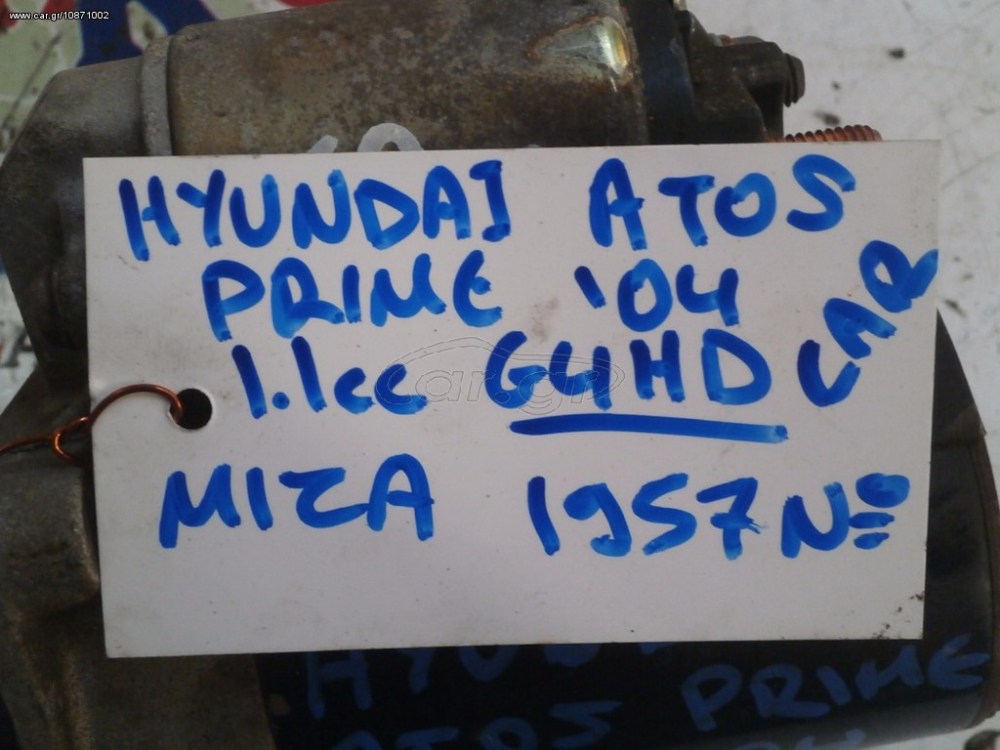 www.car.gr/10871002
HYUNDAI ATOS
PRIME '04
1.1cc G4HD CAR
ΜΙΖΑ 1957 Nº
car.gr
HYU
ATOS PRIME